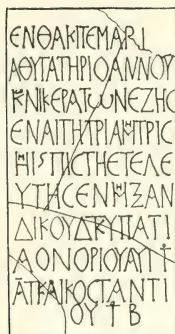 ΕΝΘΑΚΙΤΕΜΑΡΙ
ΑΘΥΓΑΤΗΡΙΟΑΝΝΟΥ
ΚΝΙΚΕΡΑΤωΝΕΖΗC
ΕΝΑΙΤΗΤΡΙΑΜΤΡΙC
ΗΙCΠΙCΤΗΕΤΕΛΕ
ΥΤΗCΕΝΜΞΑΝ
ΔΙΚΟΥΔΚΥΠΑΤΙ
ΑΟΝΟΡΙΟΥΑΥΓ†
ΑΤΚΑΙΚΟCΤΑΝΤΙ
ΟΥ † Β